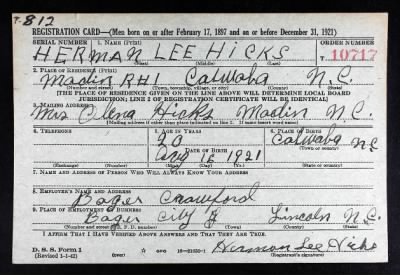 T-812
REGISTRATION CARD—(Men born on or after February 17, 1897 and on or before December 31, 1921)
SERIAL NUMBER 1. NAME (Print) ORDER NUMBER
HERMAN LEE HICKS T 10717
(First) (Middle) (Last)
2. PLACE OF RESIDENCE (Print)
Maolin RH1 Catwaba N.C.
(Number and street) (Town, township, village, or city) (County) (State)
[THE PLACE OF RESIDENCE GIVEN ON THE LINE ABOVE WILL DETERMINE LOCAL BOARD
JURISDICTION; LINE 2 OF REGISTRATION CERTIFICATE WILL BE IDENTICAL]
3. MAILING ADDRESS
Mrs Clena Hicks Maolin N.C.
[Mailing address if other than place indicated on line 2. If same insert word same]
4. TELEPHONE 5. AGE IN YEARS 6. PLACE OF BIRTH
20 Catwaba
DATE OF BIRTH (Town or county)
Aug 16 1921 N.C.
(Exchange) (Number) (Mo.) (Day) (Yr.) (State or country)
7. NAME AND ADDRESS OF PERSON WHO WILL ALWAYS KNOW YOUR ADDRESS
8. EMPLOYER'S NAME AND ADDRESS
Boger Crawford
9. PLACE OF EMPLOYMENT OR BUSINESS
Boger City Lincoln N.C.
(Number and street or R. F. D. number) (Town) (County) (State)
I AFFIRM THAT I HAVE VERIFIED ABOVE ANSWERS AND THAT THEY ARE TRUE.
D. S. S. Form 1
(Revised 1-1-42) (over) 16-21630-1 Herman Lee Hicks